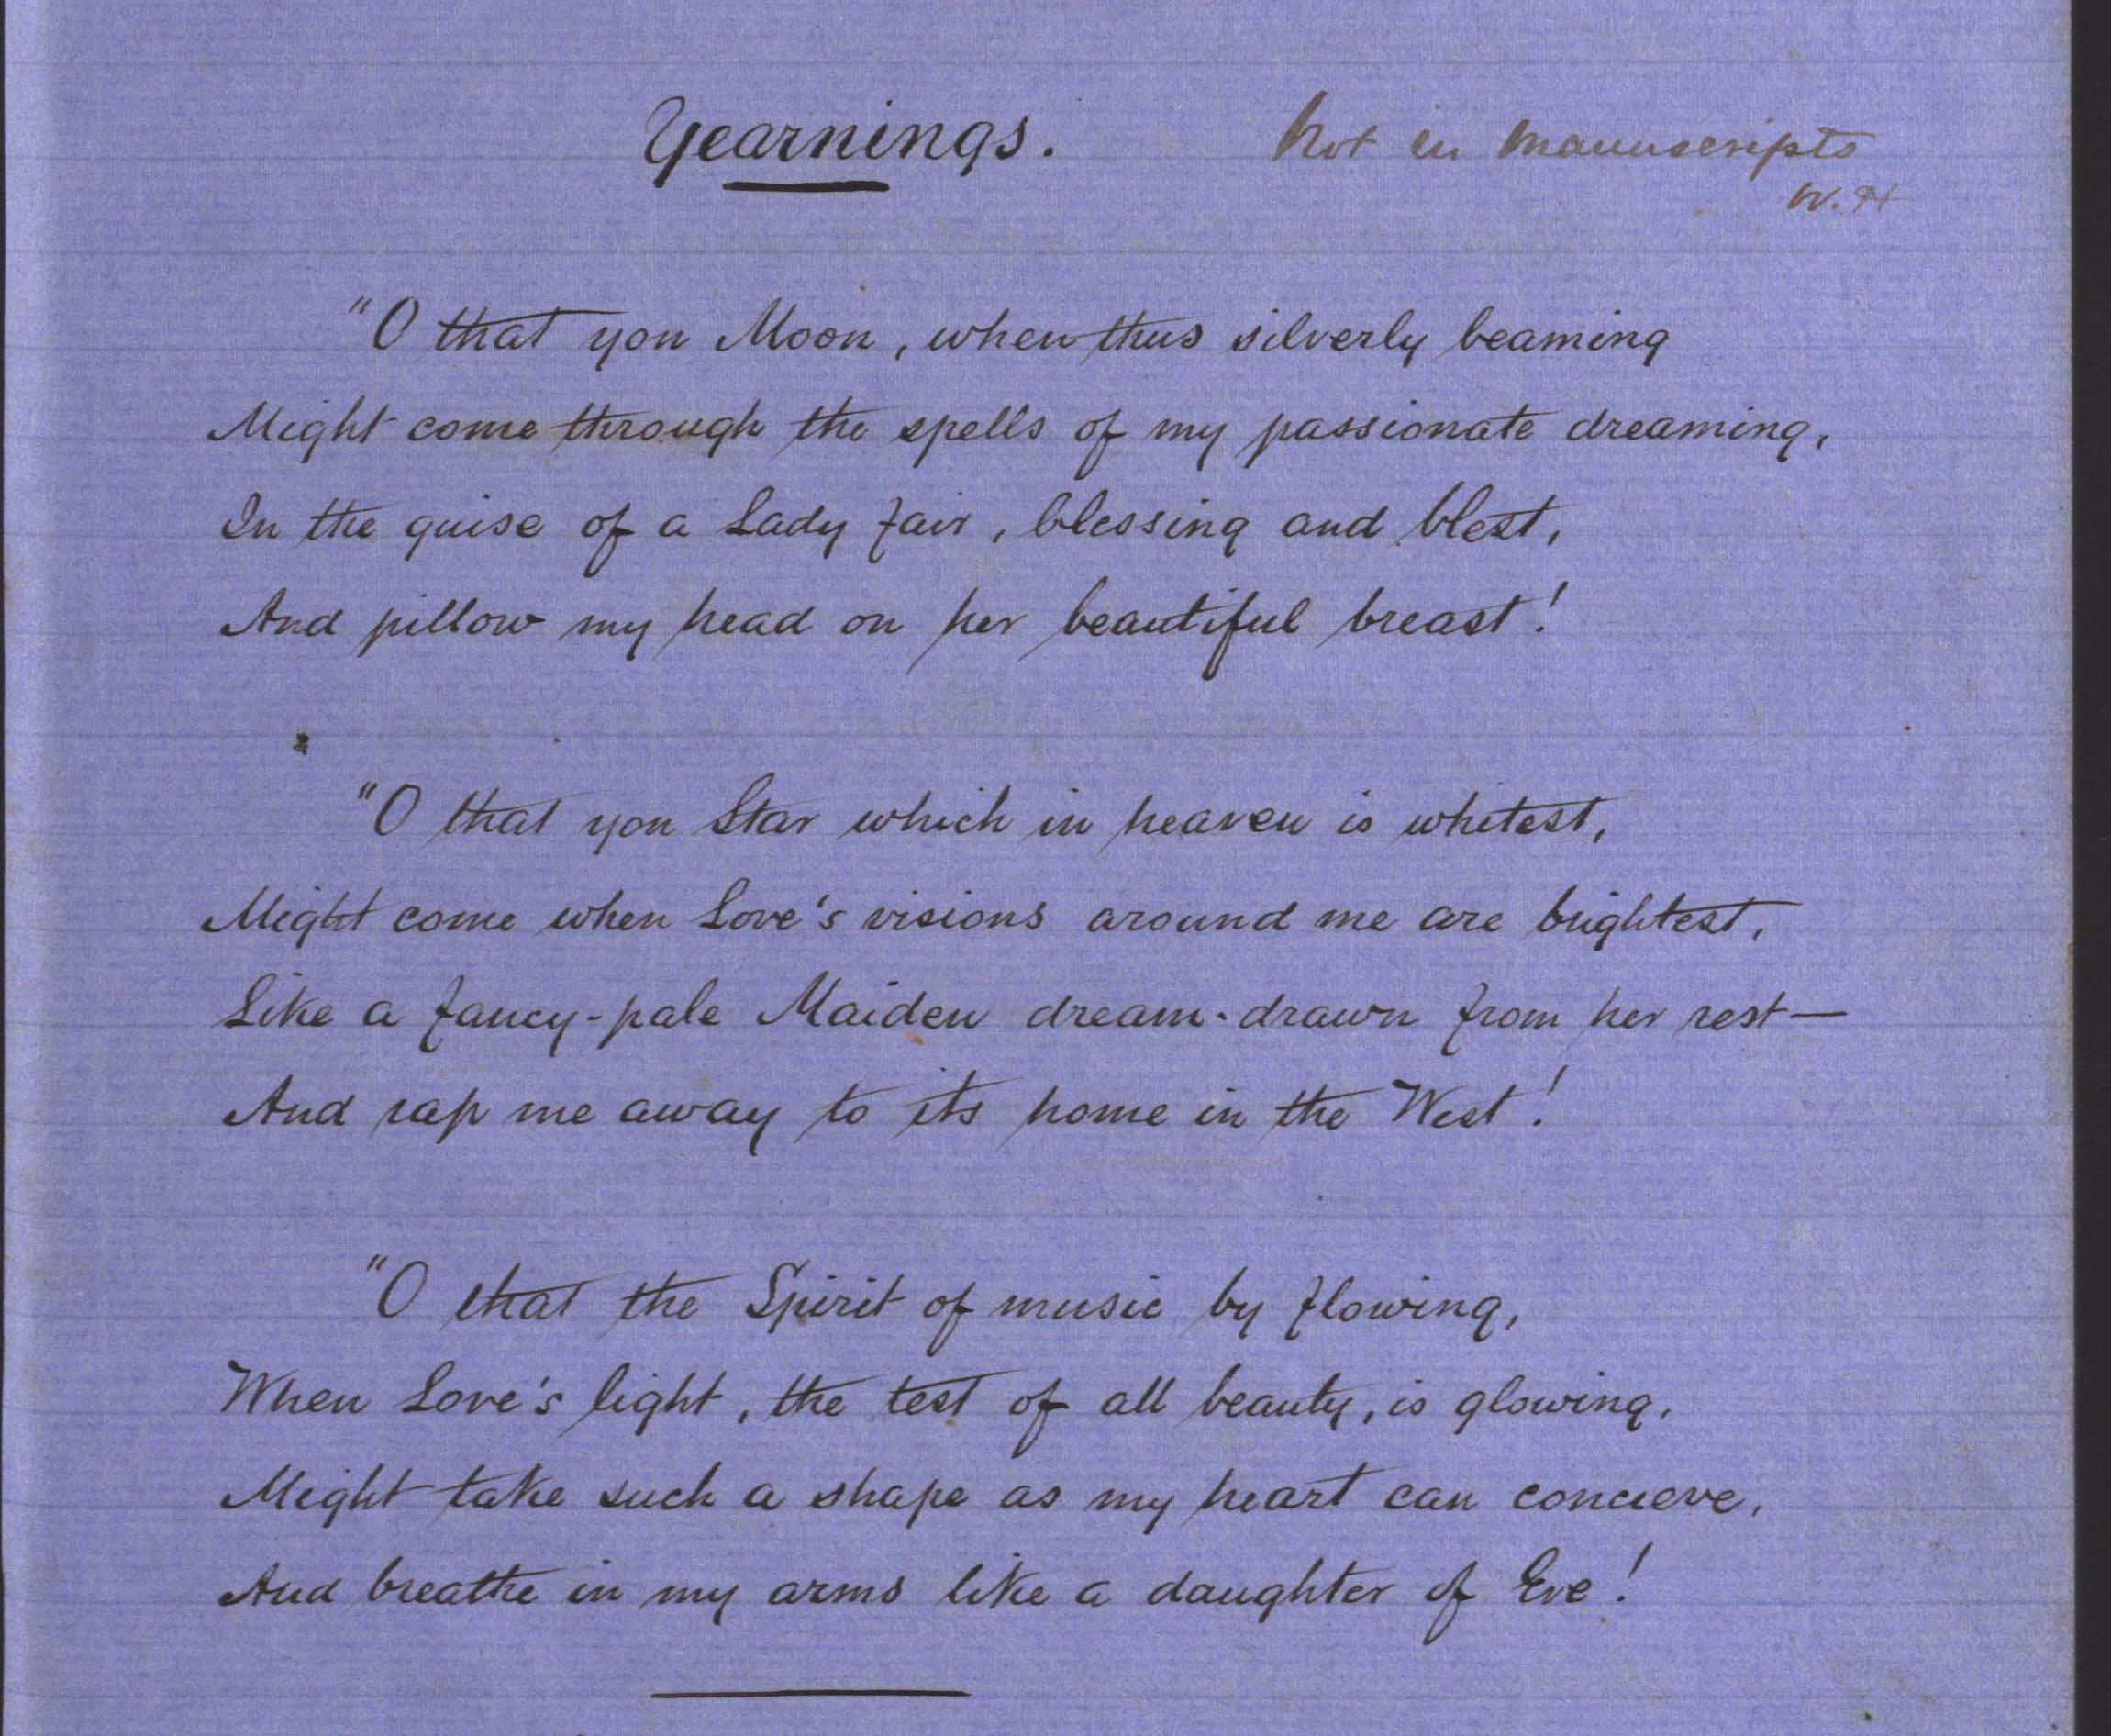 Yearnings.
Not in Manuscripts
W. H
"O that yon Moon, when thus silverly beaming
Might come through the spells of my passionate dreaming,
In the guise of a Lady fair, blessing and blest,
And pillow my head on her beautiful breast!
"O that yon Star which in heaven is whitest,
Might come when Love's visions around me are brightest,
Like a fancy-pale Maiden dream-drawn from her rest—
And rap me away to its home in the West!
"O that the Spirit of music by flowing,
When Love's light, the test of all beauty, is glowing,
Might take such a shape as my heart can concieve,
And breathe in my arms like a daughter of Eve!